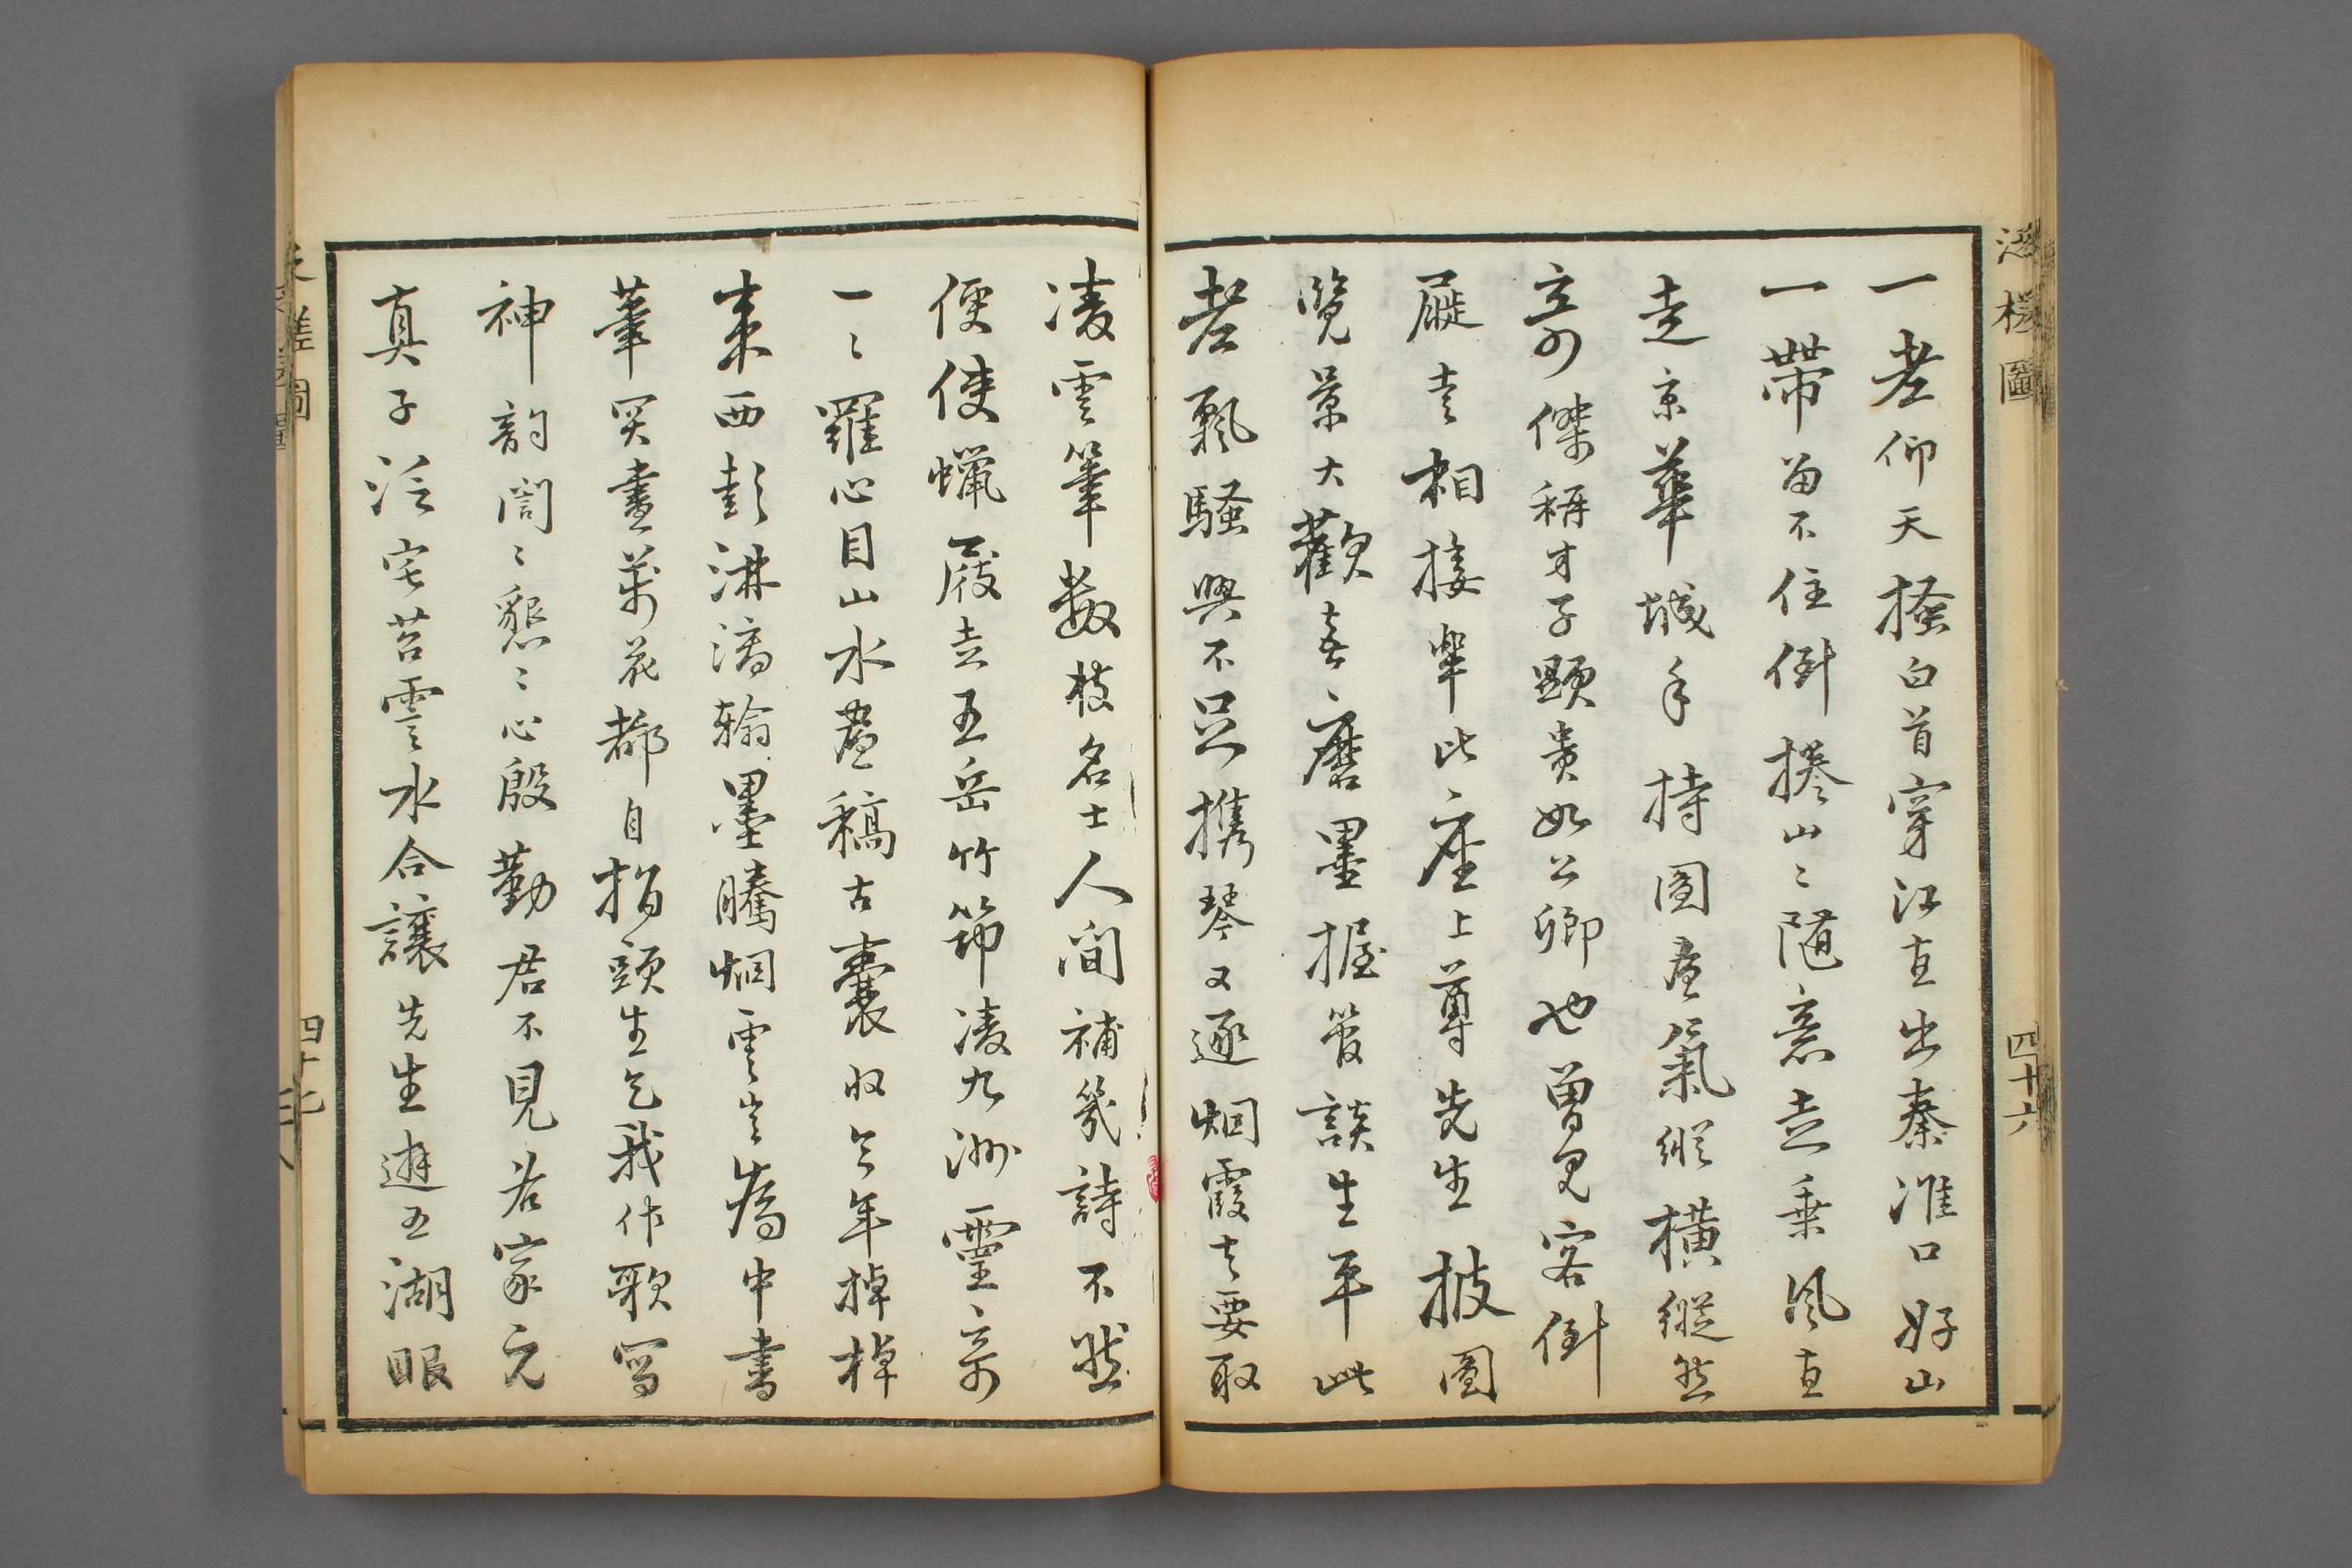 泛槎圖
四十六
一老仰天搔白首穿江直出秦淮口好山
一帶留不住倒捲山〻隨意走乘風直
走京華城手持圖畫氣縱橫縱然
奇傑稱才子顯貴如公卿也曾見客倒
屣去相接畢此座上尊先生披圖
覽景大歡喜磨墨握管談生平此
老飄騷興不足攜琴又逐烟霞去要取
凌雲筆數枝名士人間補幾詩不然
便使蠟屐走五岳竹筇凌九洲靈奇
一〻羅心目山水畫稿古囊收今年掉棹
來西彭淋漓翰墨騰烟雲豈為中書
筆哭畫萬花都自指頭生乞我作歌寫
神韵誾〻懇〻心殷勤君不見君家元
真子泛宅苕雲水合讓先生遊五湖眼
四十七